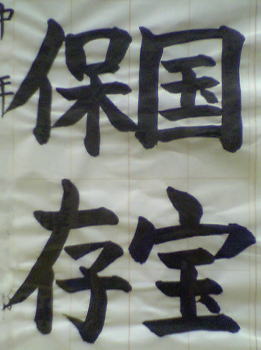 国宝
保存
中年